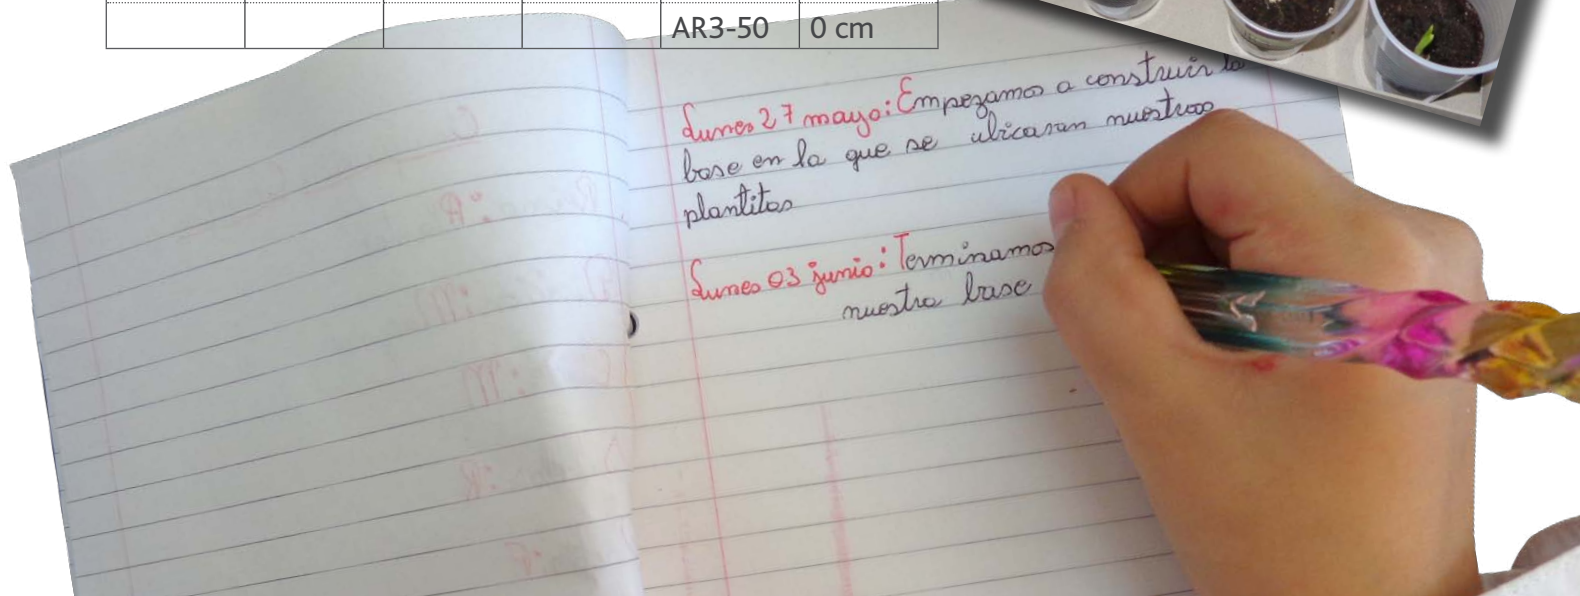 AR3-50 0 cm
Lunes 27 mayo: Empezamos a construir la
base en la que se ubicaran nuestras
plantitas
Lunes 03 junio: Terminamos
nuestra base